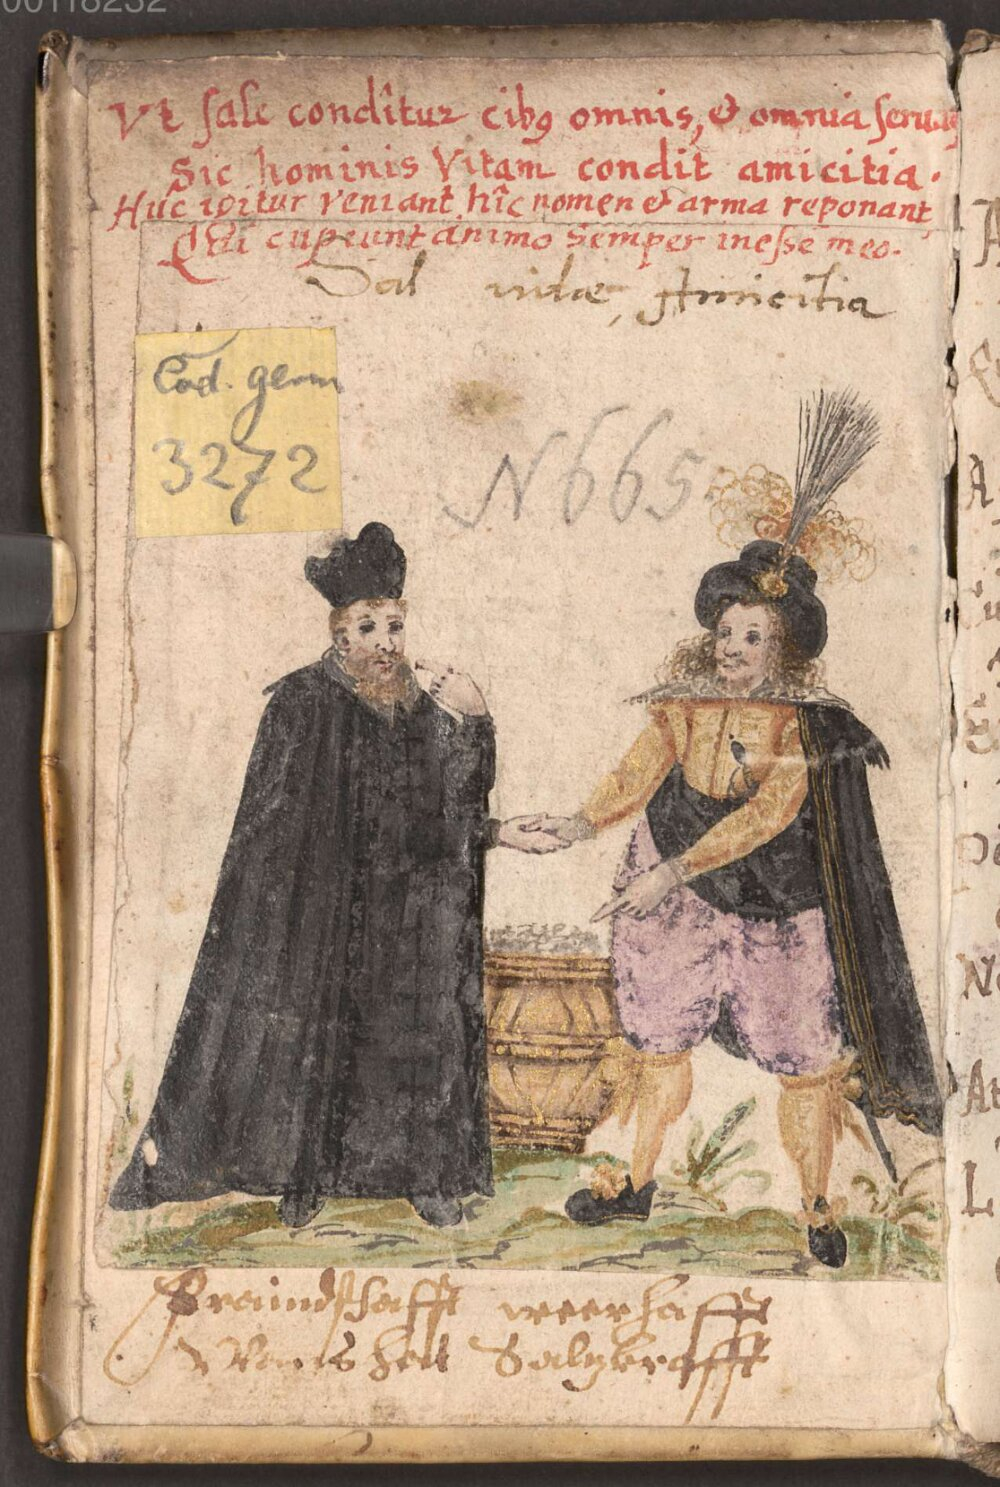 00118232
Vt sale condîtur cibꝰ omnis, & omnia
Sic hominis Vitam condit amicitia.
Huc igitur veniant hîc nomen & arma reponant,
Qui cupeunt animo semper inesse meo.
Sal vitae, Amicitia
Cod. germ
3272
N 665.
Fraündtschafft weerhafft
Wans heit Saltzkrafft
A
A
L